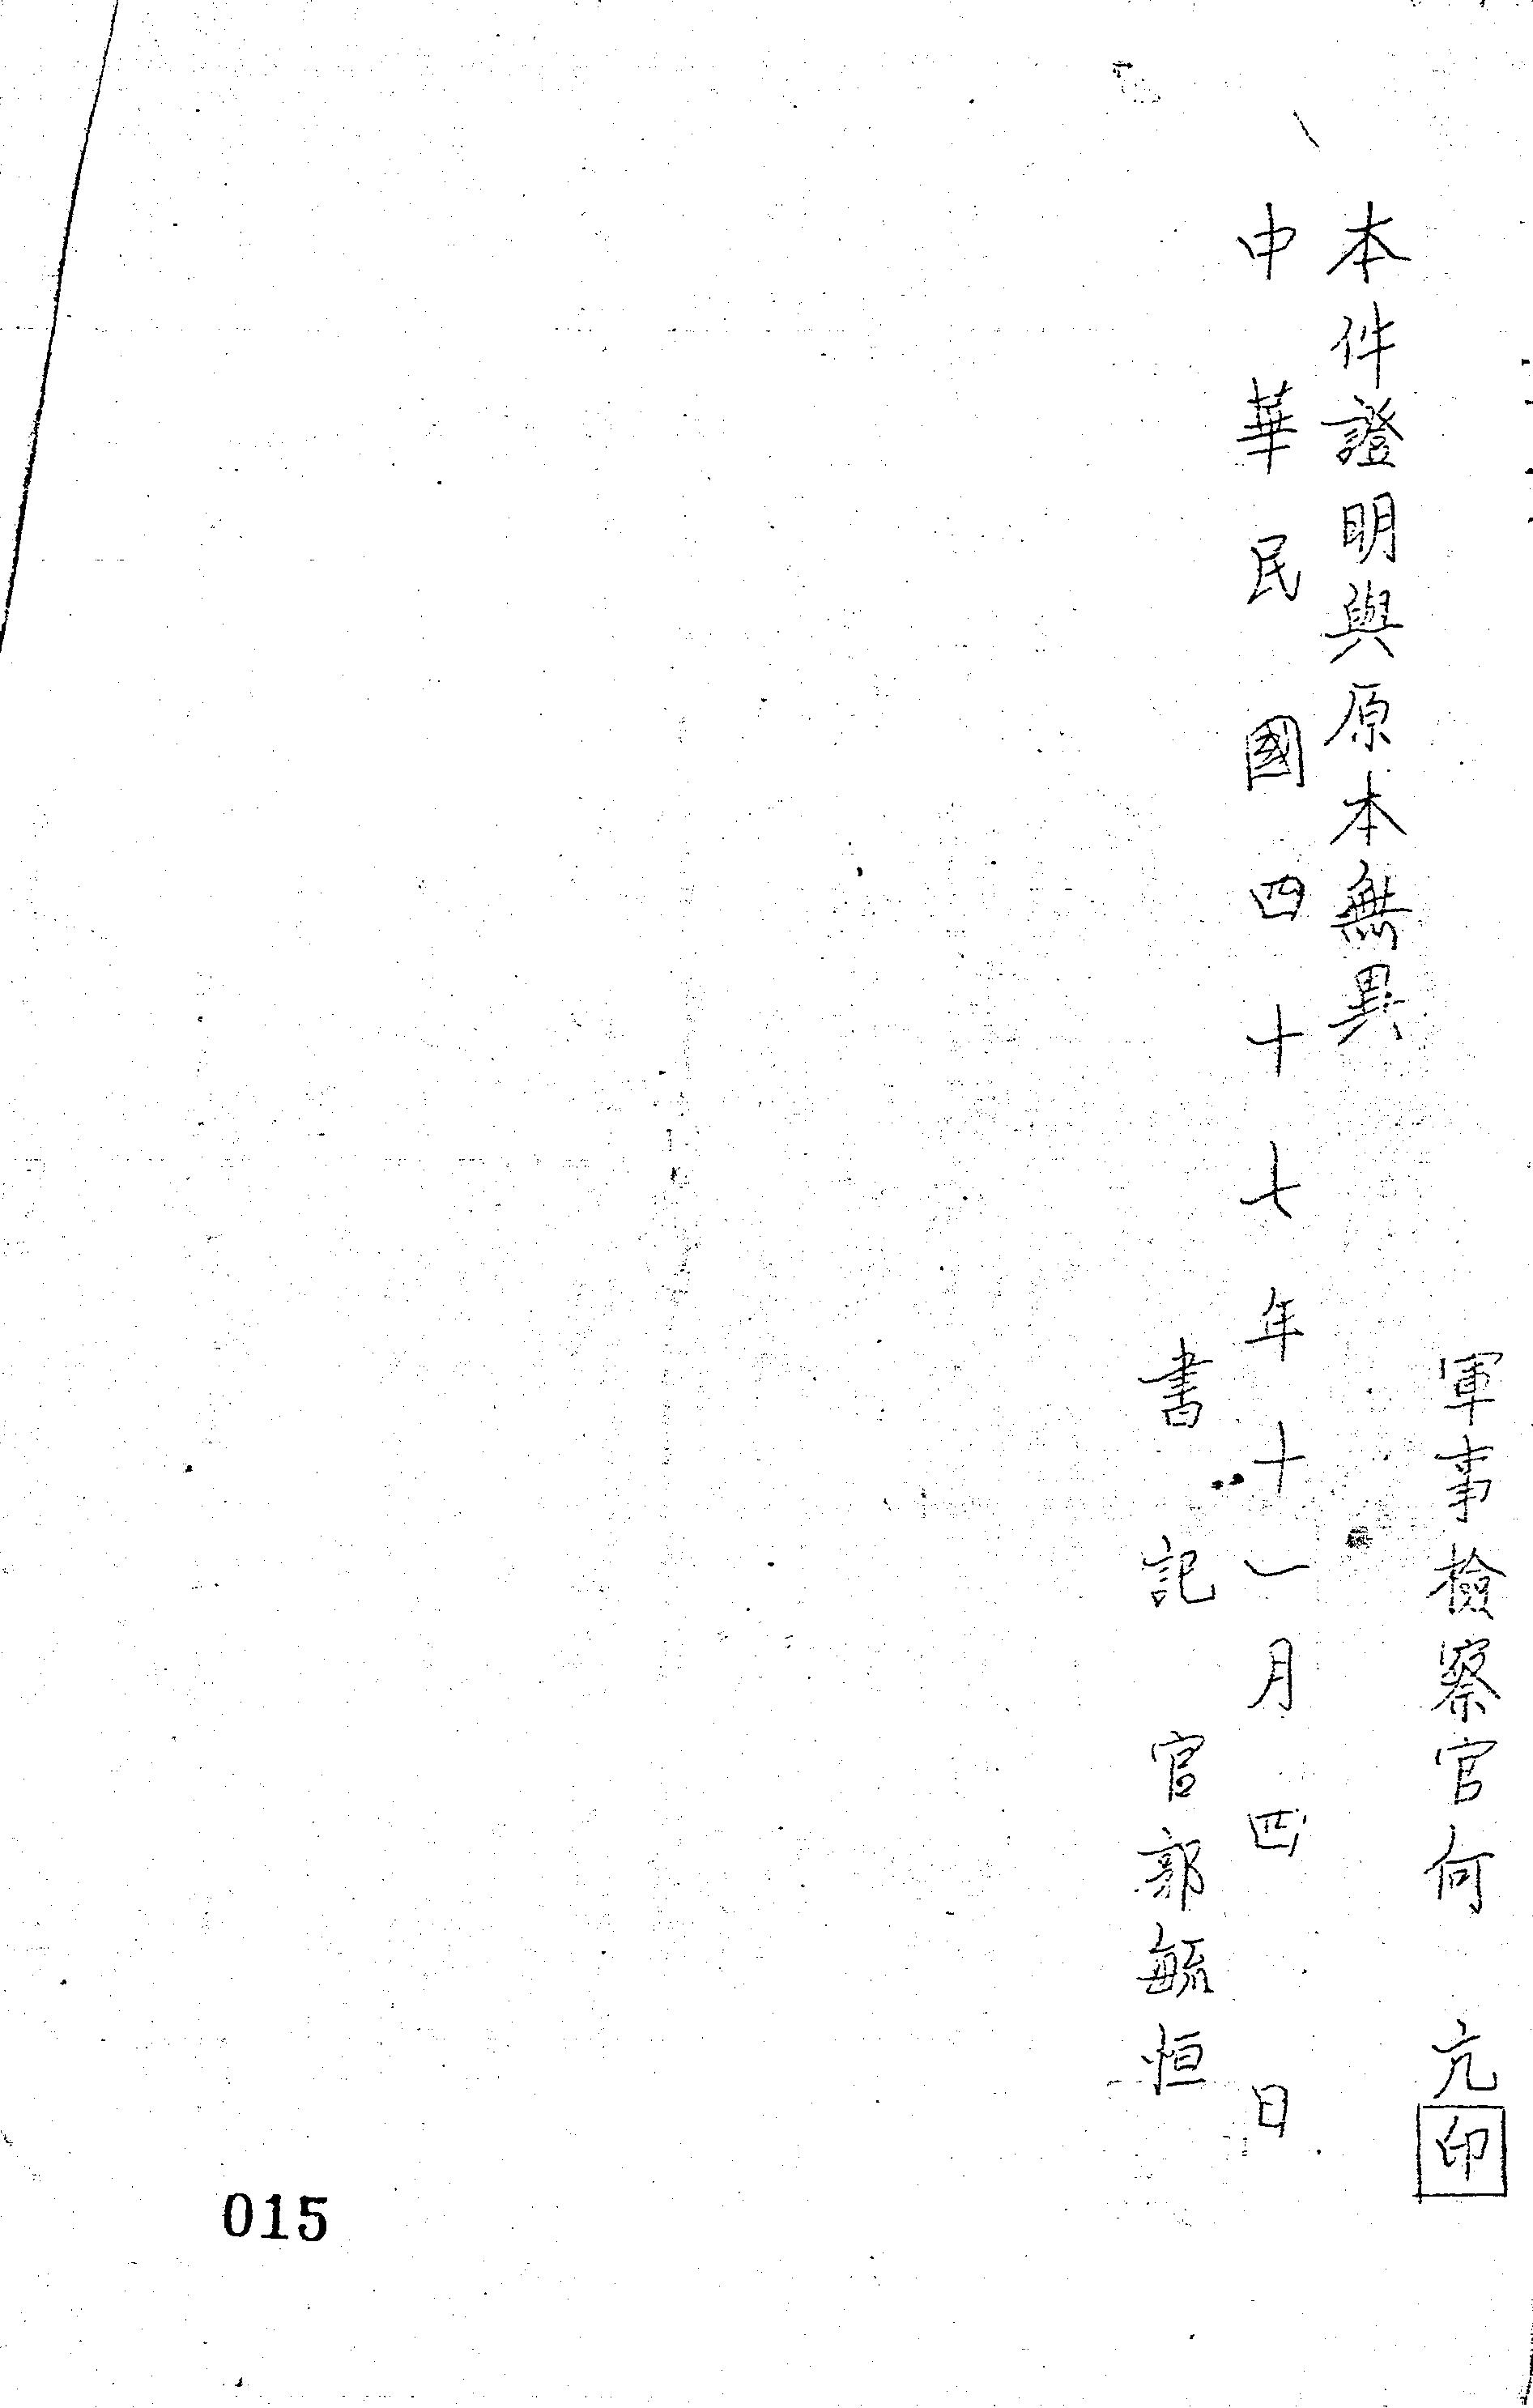 軍事檢察官何 亢印
本件證明與原本無異
中華民國四十七年十一月四日
書記官郭毓恒
015